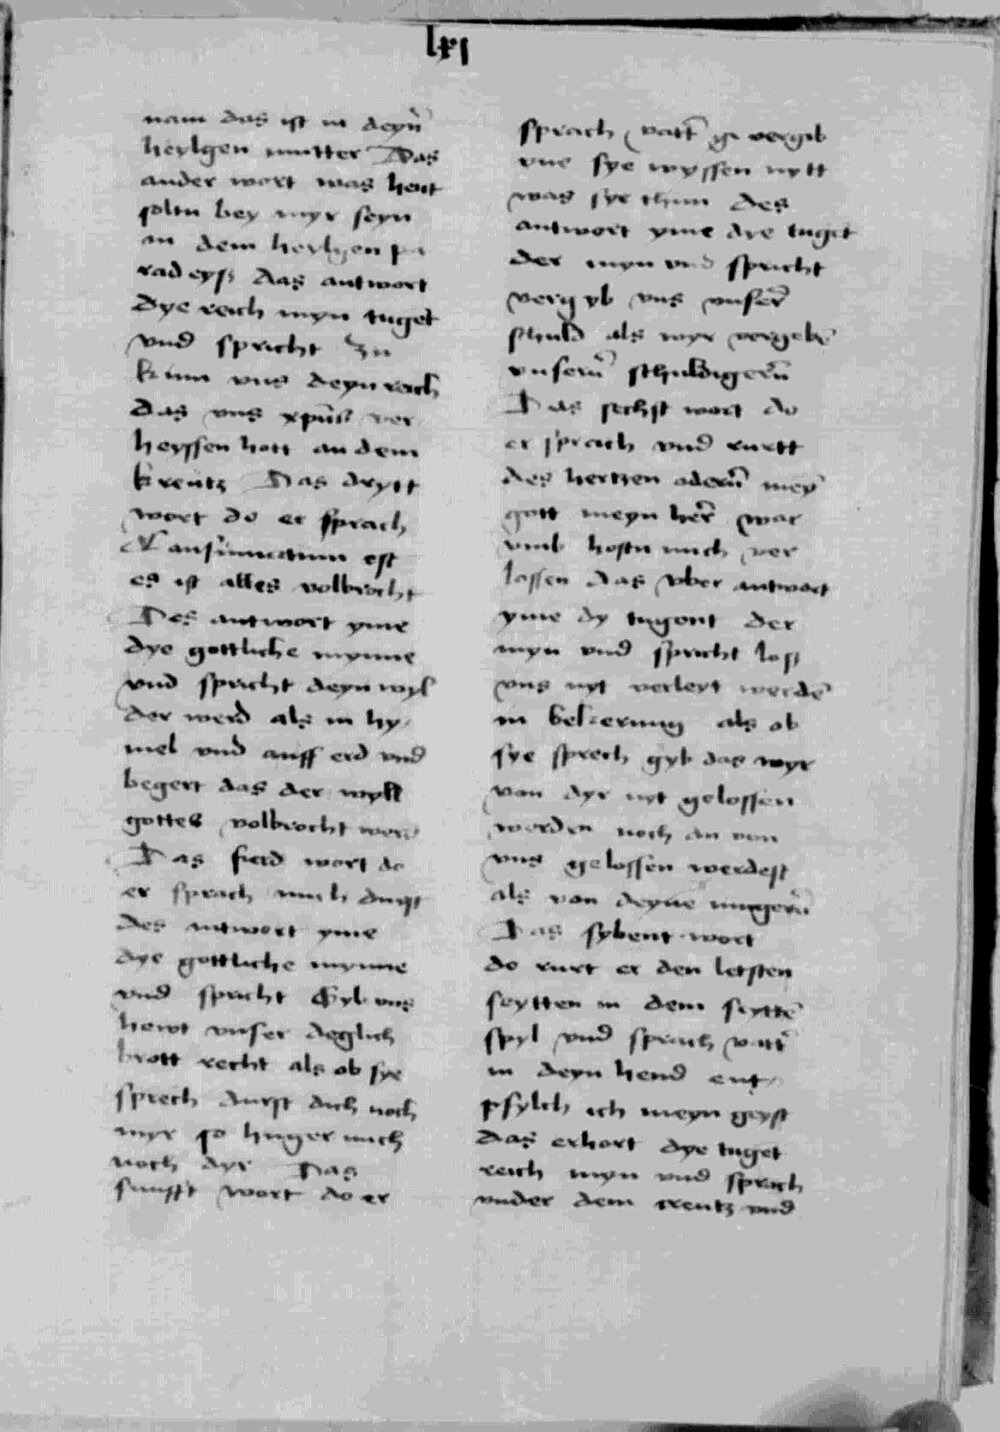 lxj
nam das ist in deyn̄
heylgen mutter Das
ander wort was heut
soltu bey myr seyn
in dem heylgen pa
radeyß das antwort
dye reich myn tuget
vnd spricht Zu
kum vns deyn reich
das vns xpūs ver
heyssen hott an dem
kreutz Das drytt
wort do er sprach
Consummatum est
es ist alles volbrocht
Des antwort yme
dye gottliche mynne
vnd spricht deyn wyl
der werd als in hy
mel vnd auff erd vnd
begert das der wyll
gottes volbrocht werd
Das fierd wort do
er sprach mich durst
des antwort yme
dye gottliche mynne
vnd spricht Gyb vns
hewt vnser deglich
brott recht als ob sye
sprech durst dich noch
myr so hunger mich
noch dyr Das
funfft wort do er
sprach vatt̄ vergib
yne sye wyssen nytt
was sye thun des
antwort yme dye tuget
der myn vnd spricht
vergyb vns vnser̄
schuld als wyr vergebē
vnsern̄ schuldigern̄
Das sechst wort do
er sprach vnd rurtt
des hertzen odern̄ mey̅
gott meyn her̄ war
vmb hostu mich ver
lossen das vber antwort
yme dy tugent der
myn vnd spricht loß
vns nyt verleyt werdē
in bekerung als ob
sye sprech gyb das wyr
von dyr nyt gelossen
werden noch du von
vns gelossen werdest
als von deyne iungern̄
Das sybent wort
do rurt er den letsten
seytten in dem seyttē
spyl vnd sprach vatt̄
in deyn hend ent
pfylch ich meyn geyst
das erhort dye tuget
reich myn vnd sprach
vnder dem creutz vnd